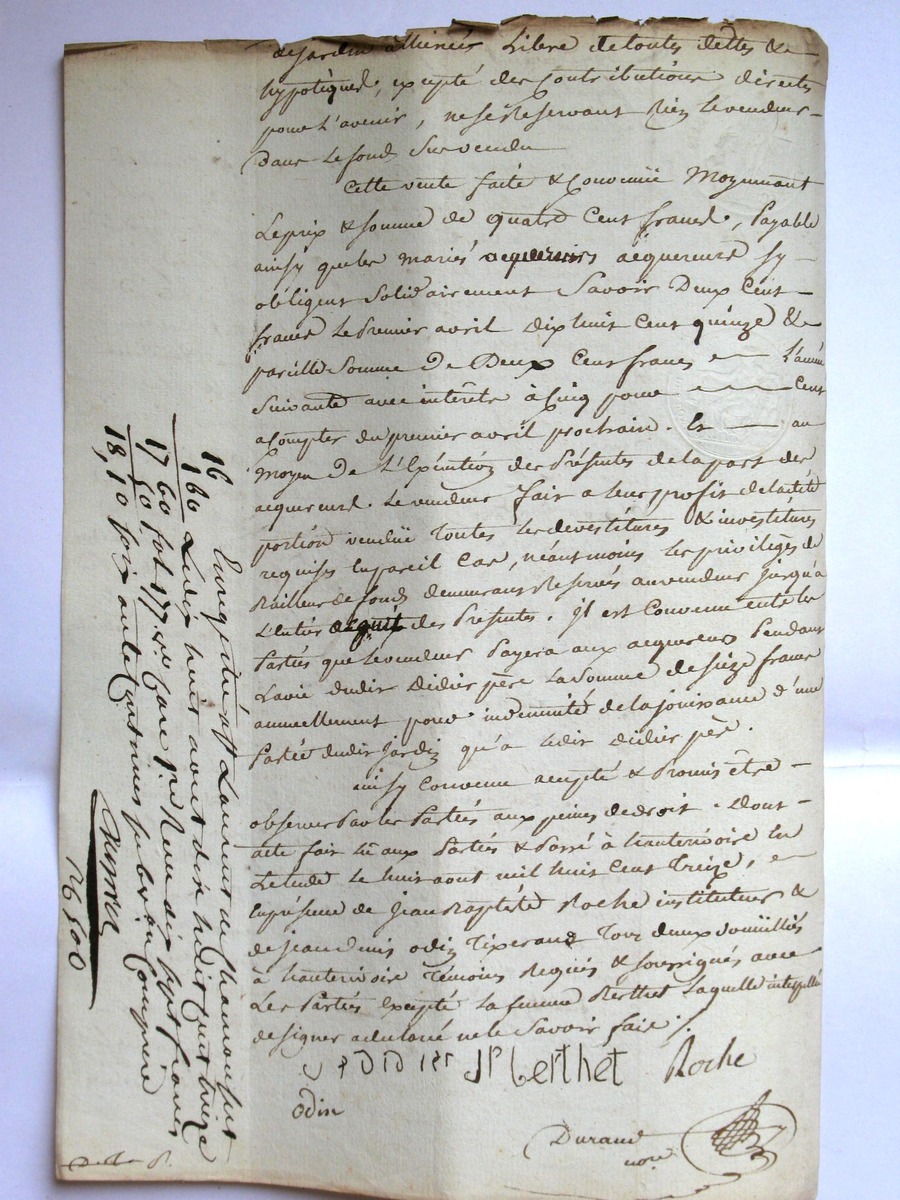 de jardin Libre de toutes dettes &
hypotèques, excepté des Contributions directes
pour L'avenir, ne se Reservant Rien Le vendeur
Dans Le fond Survendu
Cette vente faite & Convenuë Moyennant
Le prix & somme de quatre Cent francs, Payable
ainsy que les mariés acquereurs sy
obligent Solidairement Savoir Deux Cent
francs Le Premier avril Dix huit Cent quinze & 
pareille Somme de Deux Cent francs L'année
Suivante avec interêts à Cinq pour Cent
a Compter du premier avril prochain. Et au
Moyen De L'Exécution des Présentes de la part des
acquereurs. Le vendeur fait a leur profit de la dite
portion venduë toutes les devestitures & investitures
requises En pareil Cas, néantmoins Les privilèges de
Bailleur de fonds demeurans Reservés au vendeur jusqu'a
L'entier acquit des Présentes. il est Convenu entre les
Parties que Le vendeur Payera aux acquereurs Pendant
La vie dudit Didier père La Somme de Seize francs
annuellement pour indemnité de la jouissance d'une
Partie dudit Jardin qu'a Ledit Didier père.
ainsy Convenu accepté & Promis être
observé Par Les Parties aux peines de droit. Dont
acte fait Lû aux Parties & Passé à hauterivoire En
L'etude Le huit aout mil huit Cent treize, en
La présence de Jean Baptiste Roche instituteur &
de jean denis odin Tixerand Tous deux domiciliés
à hauterivoire Témoins Requis & soussignés avec
Les Parties Excepté La femme Berthet Laquelle interpellée
de signer a declaré ne le Savoir faire /.
DIDIER Berthet Roche
odin
Durand
nore
Enregistré à St Laurent de Chamousset
Le dix huit aout dix huit Cent treize
fol 177 Reçu dix sept francs
soixante Centimes
16
1 60
17 60
50
18,10
26 500